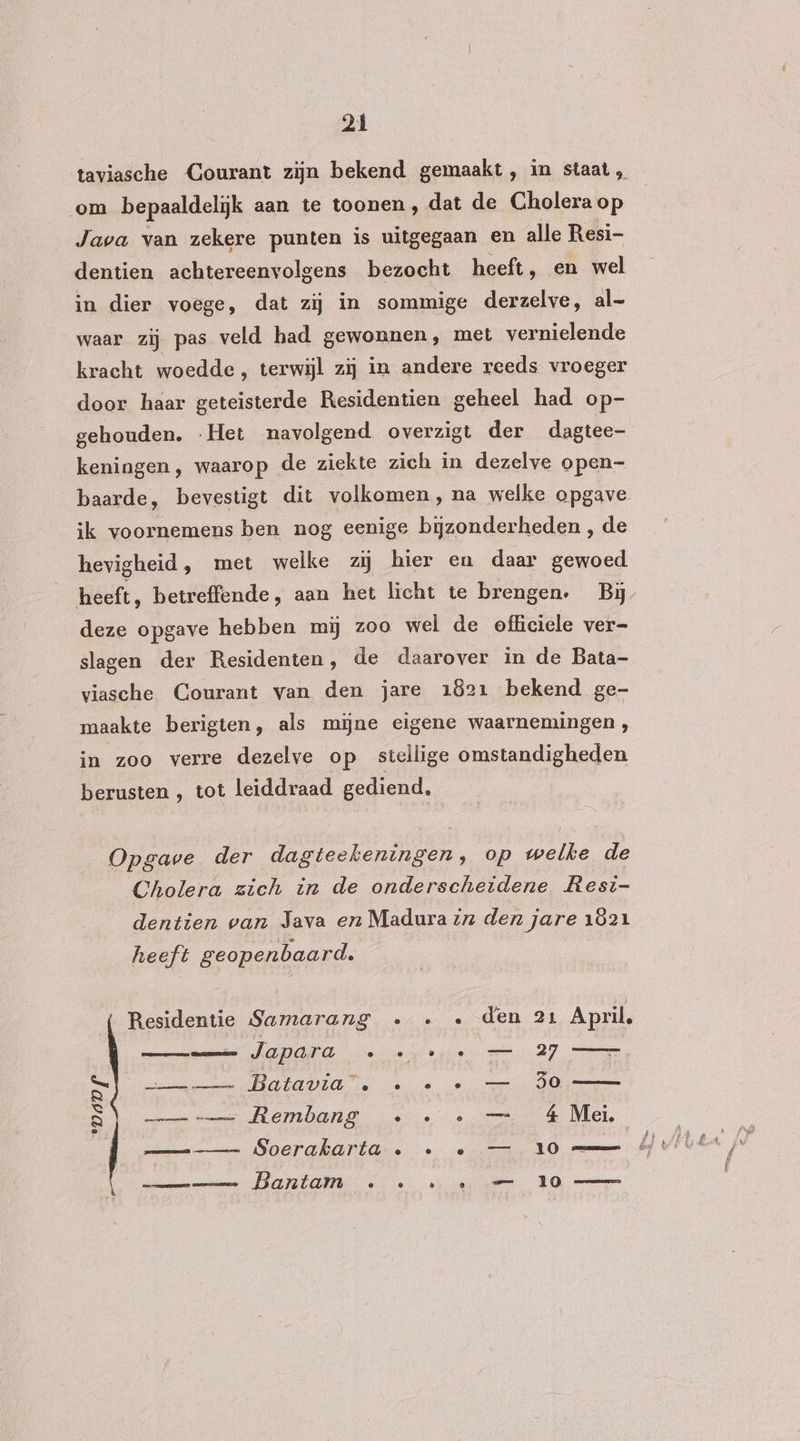 21
taviasche Courant zijn bekend gemaakt, in staat,
om bepaaldelijk aan te toonen, dat de Cholera op
Java van zekere punten is uitgegaan en alle Resi-
dentien achtereenvolgens bezocht heeft, en wel
in dier voege, dat zij in sommige derzelve, al-
waar zij pas veld had gewonnen, met vernielende
kracht woedde, terwijl zij in andere reeds vroeger
door haar geteisterde Residentien geheel had op-
gehouden. Het navolgend overzigt der dagtee-
keningen, waarop de ziekte zich in dezelve open-
baarde, bevestigt dit volkomen, na welke opgave
ik voornemens ben nog eenige bijzonderheden, de
hevigheid, met welke zij hier en daar gewoed
heeft, betreffende, aan het licht te brengen. Bij
deze opgave hebben mij zoo wel de officiele ver-
slagen der Residenten, de daarover in de Bata-
viasche Courant van den jare 1821 bekend ge-
maakte berigten, als mijne eigene waarnemingen,
in zoo verre dezelve op stellige omstandigheden
berusten, tot leiddraad gediend.
Opgave der dagteekeningen, op welke de
Cholera zich in de onderscheidene Resi-
dentien van Java en Madura in den jare 1821
heeft geopenbaard.
Java.
Residentie Samarang . . . den 21 April.
—— Japara . . . . — 27 ——
—— Batavia . . . . — 30 ——
—— Rembang . . . — 4 Mei.
—— Soerakarta . . . — 10 ——
—— Bantam . . . . — 10 ——